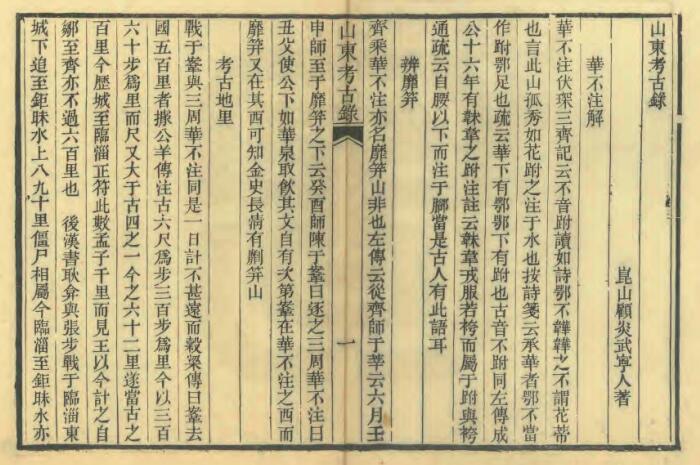 山東考古錄
崑山顧炎武寧人著
華不注解
華不注伏琛三齊記云不音跗讀如詩鄂不韡韡之不謂花蒂
也言此山孤秀如花跗之注于水也按詩箋云承華者鄂不當
作跗鄂足也疏云華下有鄂鄂下有跗也古音不跗同左傳成
公十六年有韎韋之跗注註云韎韋戎服若袴而屬于跗與袴
通疏云自腰以下而注于腳當是古人有此語耳
辨靡笄
齊乘華不注亦名靡笄山非也左傳云從齊師于莘云六月壬
山東考古錄
一
申師至于靡笄之下云癸酉師陳于鞌曰逐之三周華不注曰
丑父使公下如華泉取飲其文自有次第鞌在華不注之西而
靡笄又在其西可知金史長淸有劘笄山
考古地里
戰于鞌與三周華不注同是一日計不甚遠而穀梁傳曰鞌去
國五百里者據公羊傳注古六尺爲步三百步爲里今以三百
六十步爲里而尺又大于古四之一今之六十二里遂當古之
百里今歷城至臨淄正符此數孟子千里而見王以今計之自
鄒至齊亦不過六百里也　後漢書耿弇與張步戰于臨淄東
城下追至鉅昧水上八九十里僵尸相屬今臨淄至鉅昧水亦